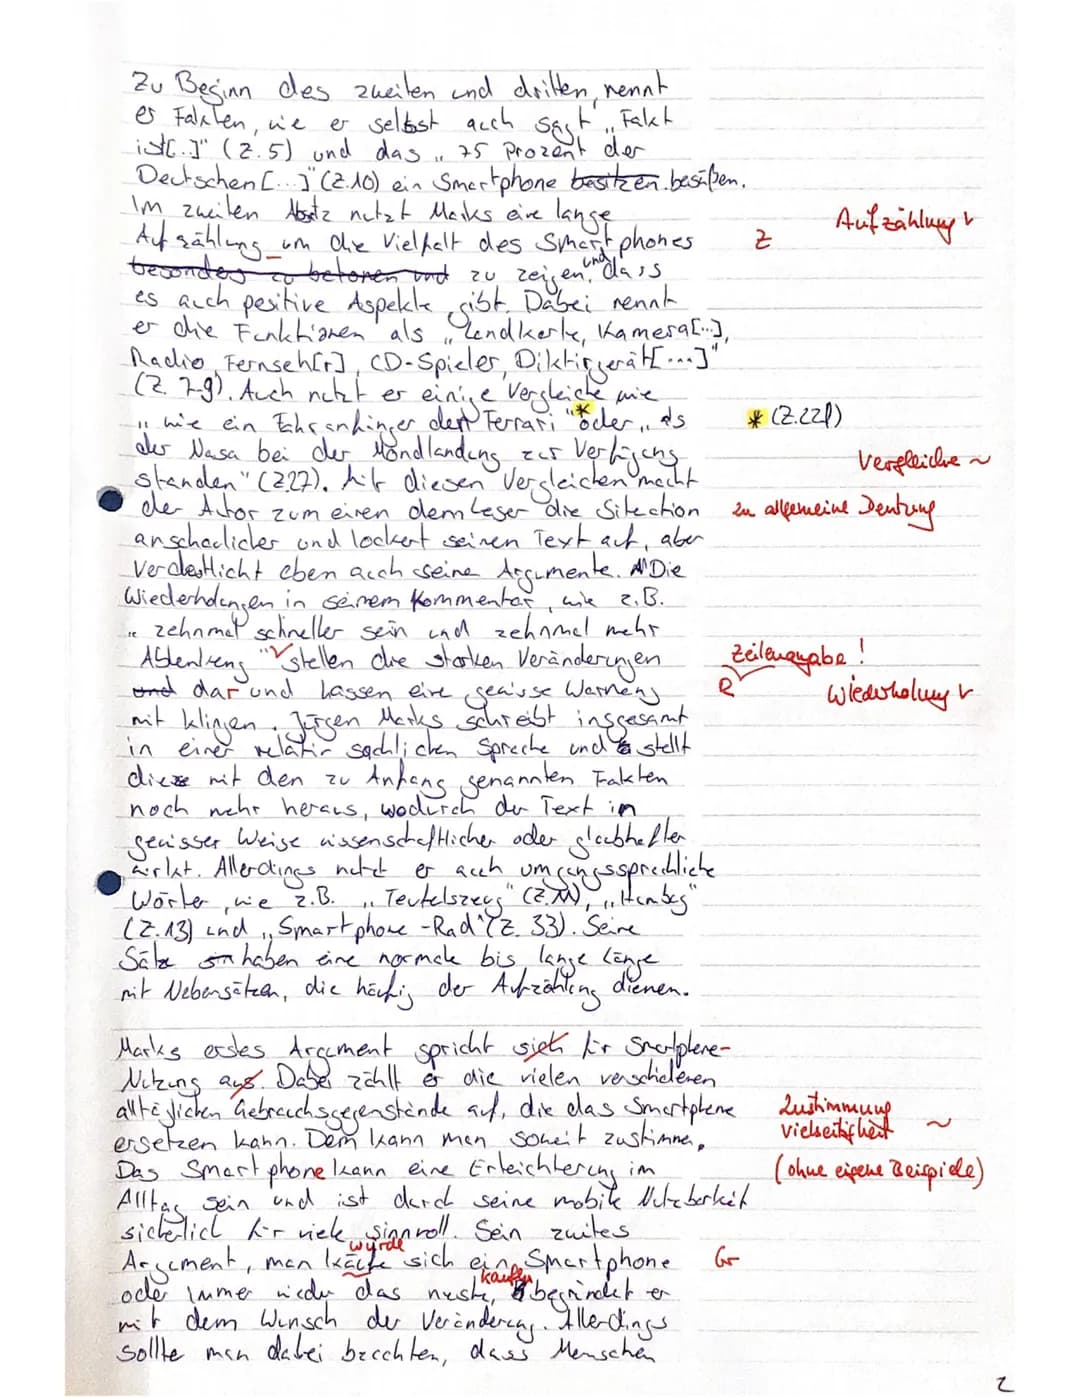 Zu Beginn des zweiten und dritten, nennt
er Fakten, wie er selbst auch sagt „Fakt
ist[..]" (Z.5) und das „75 Prozent der
Deutschen[...]"(Z.10) ein Smartphone besitzen.besäßen.
Im zweiten Absatz nutzt Marks eine lange
Aufzählung um die Vielfalt des Smartphones
Z
Aufzählung v
besonders zu betonen und zu zeigen, und dass
es auch positive Aspekte gibt. Dabei nennt
er die Funktionen als „Landkarte, Kamera[...],
Radio, Fernseh[r], CD-Spieler, Diktiergerät[...]"
(Z. 7-9). Auch nutzt er einige Vergleiche wie
„wie ein Fahranhänger dem Ferrari"* oder „als
* (Z.22f)
der Nasa bei der Mondlandung zur Verfügung
Vergleiche ~
standen" (Z27). Mit diesen Vergleichen macht
der Autor zum einen dem Leser die Situation
zu allgemeine Deutung
anschaulicher und lockert seinen Text auf, aber
verdeutlicht eben auch seine Argumente. Die
Wiederholungen in seinem Kommentar, wie z.B.
„zehnmal schneller sein und zehnmal mehr
Ablenkung" stellen die starken Veränderungen
Zeilenangabe!
und dar und lassen eine gewisse Warnung
R
Wiederholung v
mit klingen. Jürgen Marks schreibt insgesamt
in einer relativ sachlichen Sprache und stellt
diese mit den zu Anfang genannten Fakten
noch mehr heraus, wodurch der Text in
gewisser Weise wissenschaftlicher oder glaubhafter
wirkt. Allerdings nutzt er auch umgangssprachliche
Wörter, wie z.B. „Teufelszeug" (Z.11), „Humbug"
(Z.13) und „Smartphone-Rad"(Z. 33). Seine
Sätze haben eine normale bis lange Länge
mit Nebensätzen, die häufig der Aufzählung dienen.
Marks erstes Argument spricht sich für Smartphone-
Nutzung aus. Dabei zählt er die vielen verschiedenen
alltäglichen Gebrauchsgegenstände auf, die das Smartphone
Zustimmung
Vielseitigkeit ~
ersetzen kann. Dem kann man soweit zustimmen.
Das Smartphone kann eine Erleichterung im
(ohne eigene Beispiele)
Alltag sein und ist durch seine mobile Nutzbarkeit
sicherlich für viele sinnvoll. Sein zweites
würde
Argument, man kaufe sich ein Smartphone
Gr
kaufen
oder immer wieder das neuste, begründet er
mit dem Wunsch der Veränderung. Allerdings
sollte man dabei beachten, dass Menschen
2